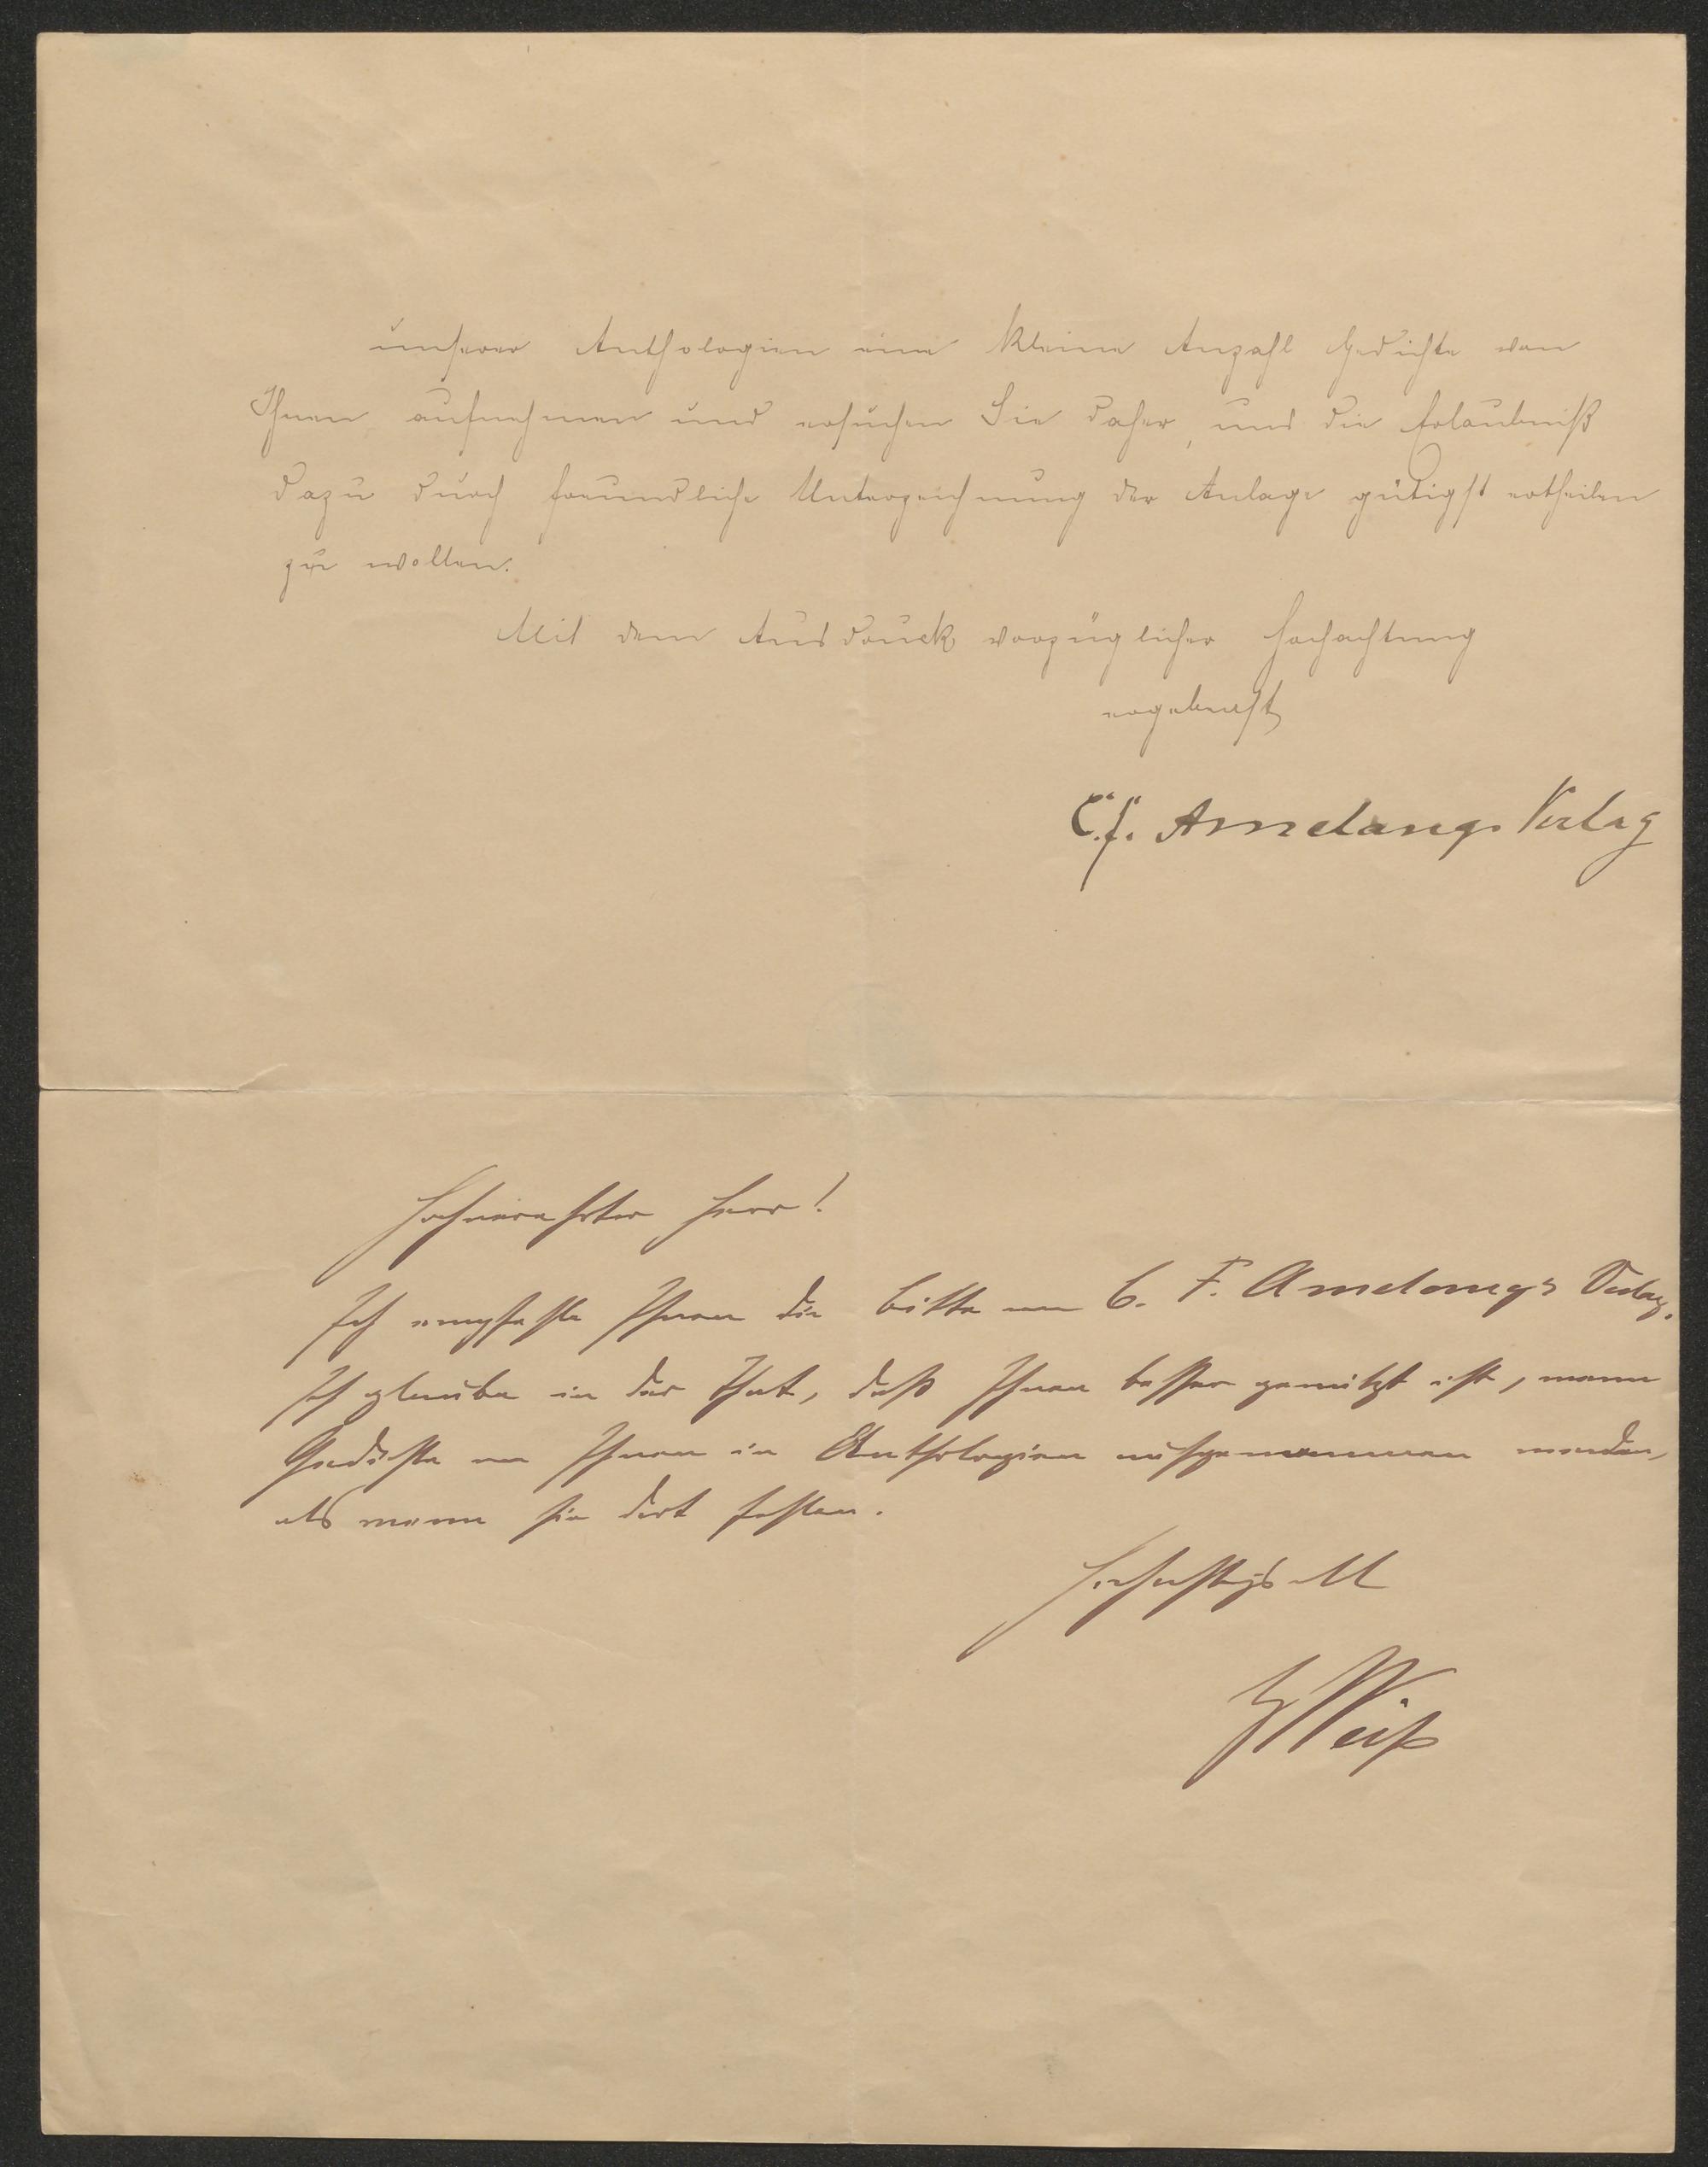 unserer Anthologien eine kleine Anzahl Gedichte von
Ihnen aufnehmen und ersuchen Sie daher, uns die Erlaubniß
dazu durch freundliche Unterzeichnung der Anlage gütigst ertheilen
zu wollen.
Mit dem Ausdruck vorzüglicher Hochachtung
ergebenst
C. F. Amelangs Verlag
Hochverehrter Herr!
Ich empfehle Ihnen die Bitte von C. F. Amelang's Verlag.
Ich glaube in der That, daß Ihnen besser genützt ist, wenn
Gedichte von Ihnen in Anthologien aufgenommen werden,
als wenn sie dort fehlen.
Hochachtungsvoll
Weiß